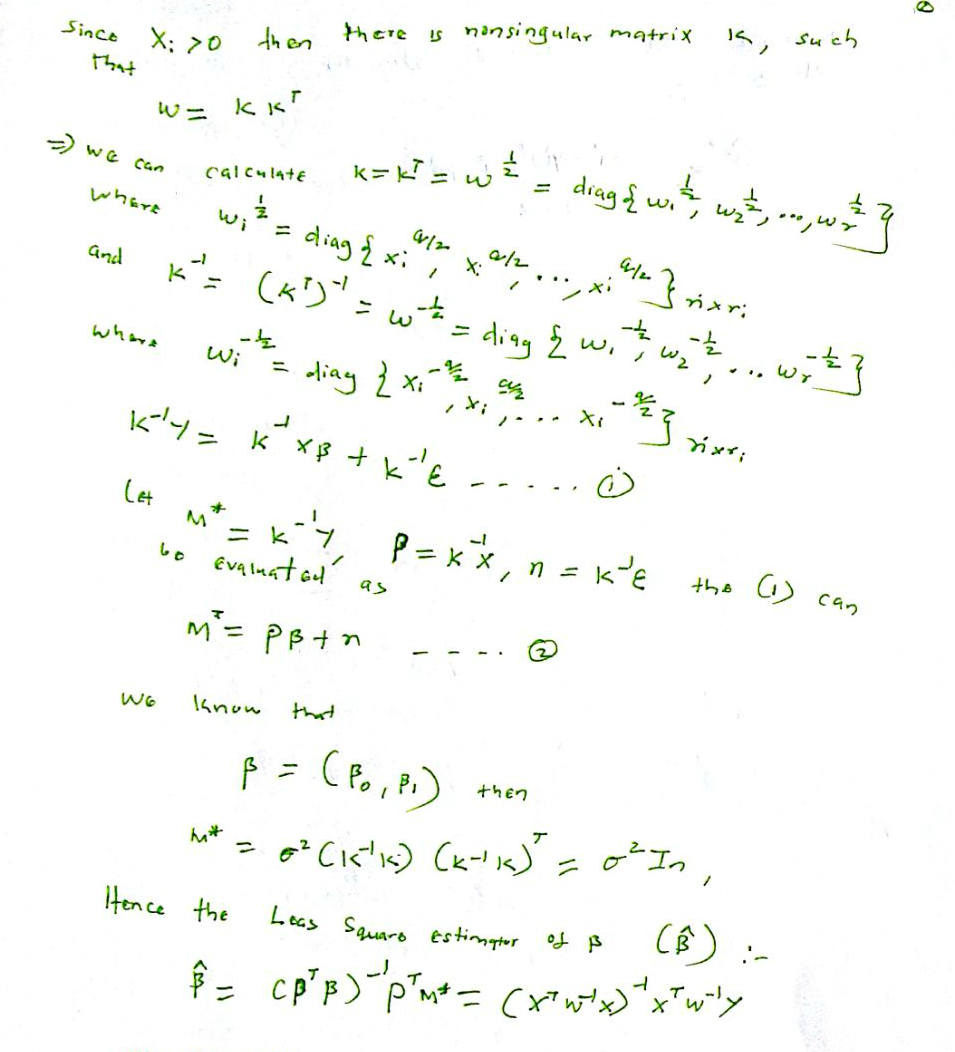 ②
Since Xᵢ >0 then there is nonsingular matrix K, such
that
W = K Kᵀ
⇒ we can calculate K = Kᵀ = W^{1/2} = diag{W₁^{1/2}, W₂^{1/2}, ..., W_r^{1/2}}
where Wᵢ^{1/2} = diag{xᵢ^{a/2}, xᵢ^{a/2}, ..., xᵢ^{a/2}} rᵢxrᵢ
and K⁻¹ = (Kᵀ)⁻¹ = W^{-1/2} = diag{W₁^{-1/2}, W₂^{-1/2}, ... W_r^{-1/2}}
where Wᵢ^{-1/2} = diag{xᵢ^{-a/2}, xᵢ^{a/2}, ... xᵢ^{-a/2}} rᵢxrᵢ
K⁻¹Y = K⁻¹Xβ + K⁻¹ε ...... ①
Let M* = K⁻¹Y, P = K⁻¹X, n = K⁻¹ε the (1) can
be evaluated as
M* = Pβ + n ---- ②
We know that
β = (β₀, β₁) then
M* = σ²(K⁻¹K) (K⁻¹K)ᵀ = σ²In,
Hence the Leas Square estimator of β (β̂) :-
β̂ = (PᵀP)⁻¹PᵀM* = (XᵀW⁻¹X)⁻¹XᵀW⁻¹Y